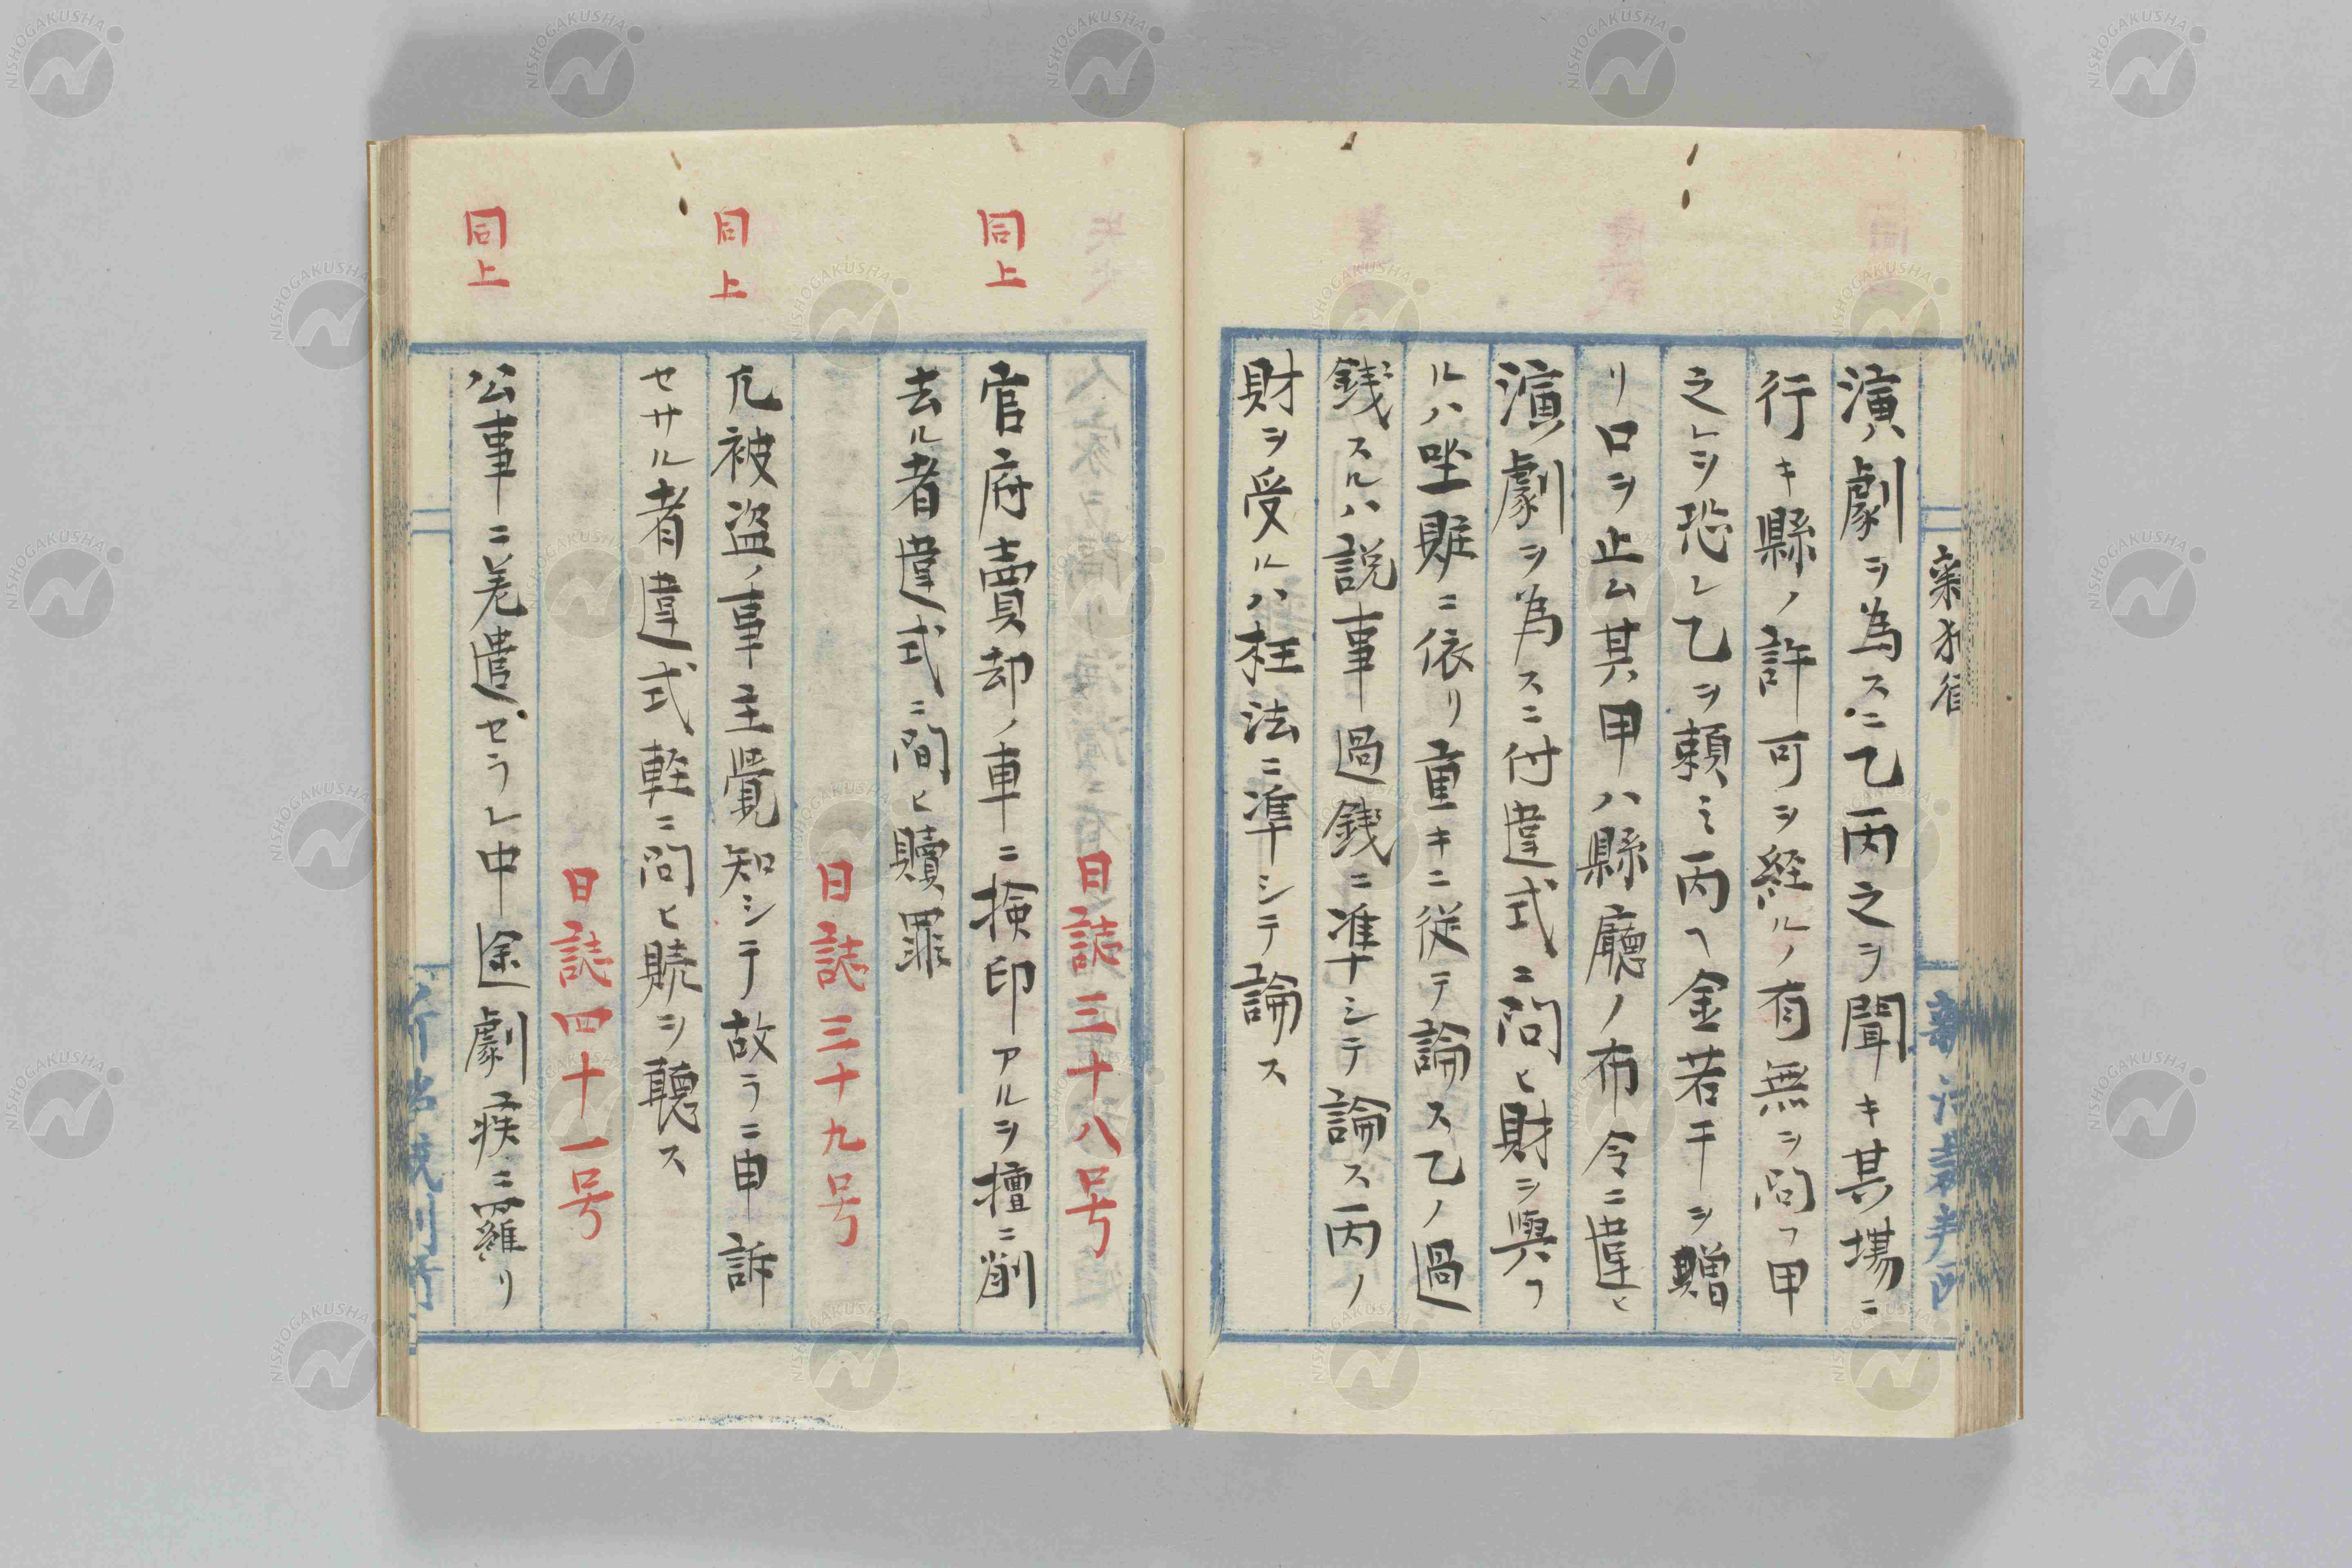 演劇ヲ為スニ乙丙之ヲ聞キ其場ニ
行キ縣ノ許可ヲ経ルノ有無ヲ問フ甲
之レヲ恐レ乙ヲ頼ミ丙ヘ金若干ヲ贈
リ口ヲ止ム其甲ハ縣廳ノ布令ニ違ヒ
演劇ヲ為スニ付違式ニ問ヒ財ヲ與フ
ルハ坐贓ニ依リ重キニ従テ論ス乙ノ過
銭スルハ説事過銭ニ準シテ論ス丙ノ
財ヲ受ルハ枉法ニ準シテ論ス
日誌三十八号
同上
官府賣却ノ車ニ検印アルヲ擅ニ削
去ル者違式ニ問ヒ贖罪
日誌三十九号
同上
凡被盗ノ事主覺知シテ故ラニ申訴
セサル者違式軽ニ問ヒ贖ヲ聴ス
日誌四十一号
同上
公事ニ差遣セラレ中途劇疾ニ羅リ
NISHOGAKUSHA